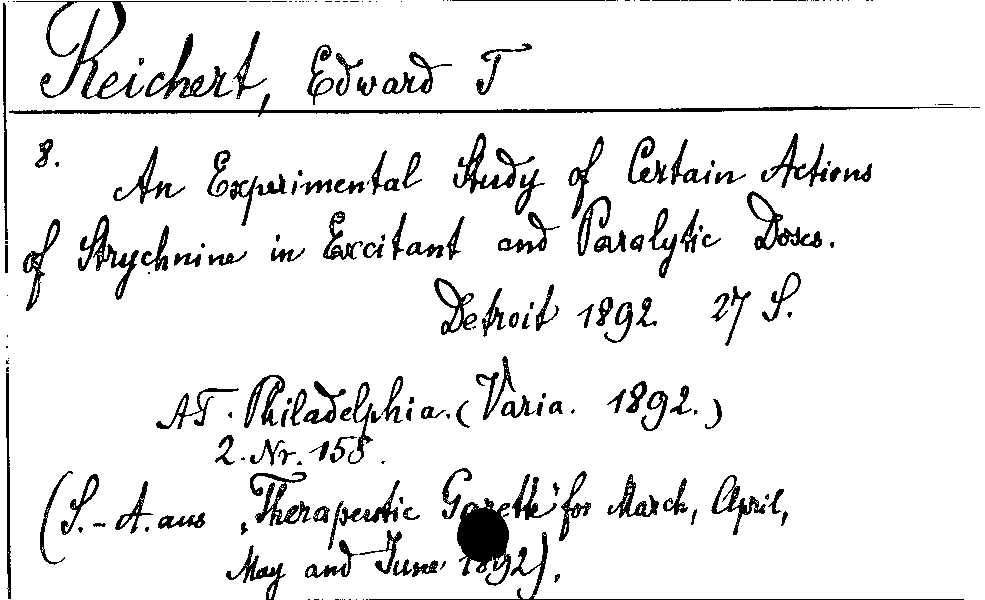 Reichert, Edward T
8.
An Experimental Study of Certain Actions
of Strychnine in Excitant and Paralytic Doses.
Detroit 1892. 27 S.
AT. Philadelphia. (Varia. 1892.)
2. Nr. 158.
(S.-A. aus „Therapeutic Gazette" for March, April,
May and June 1892).